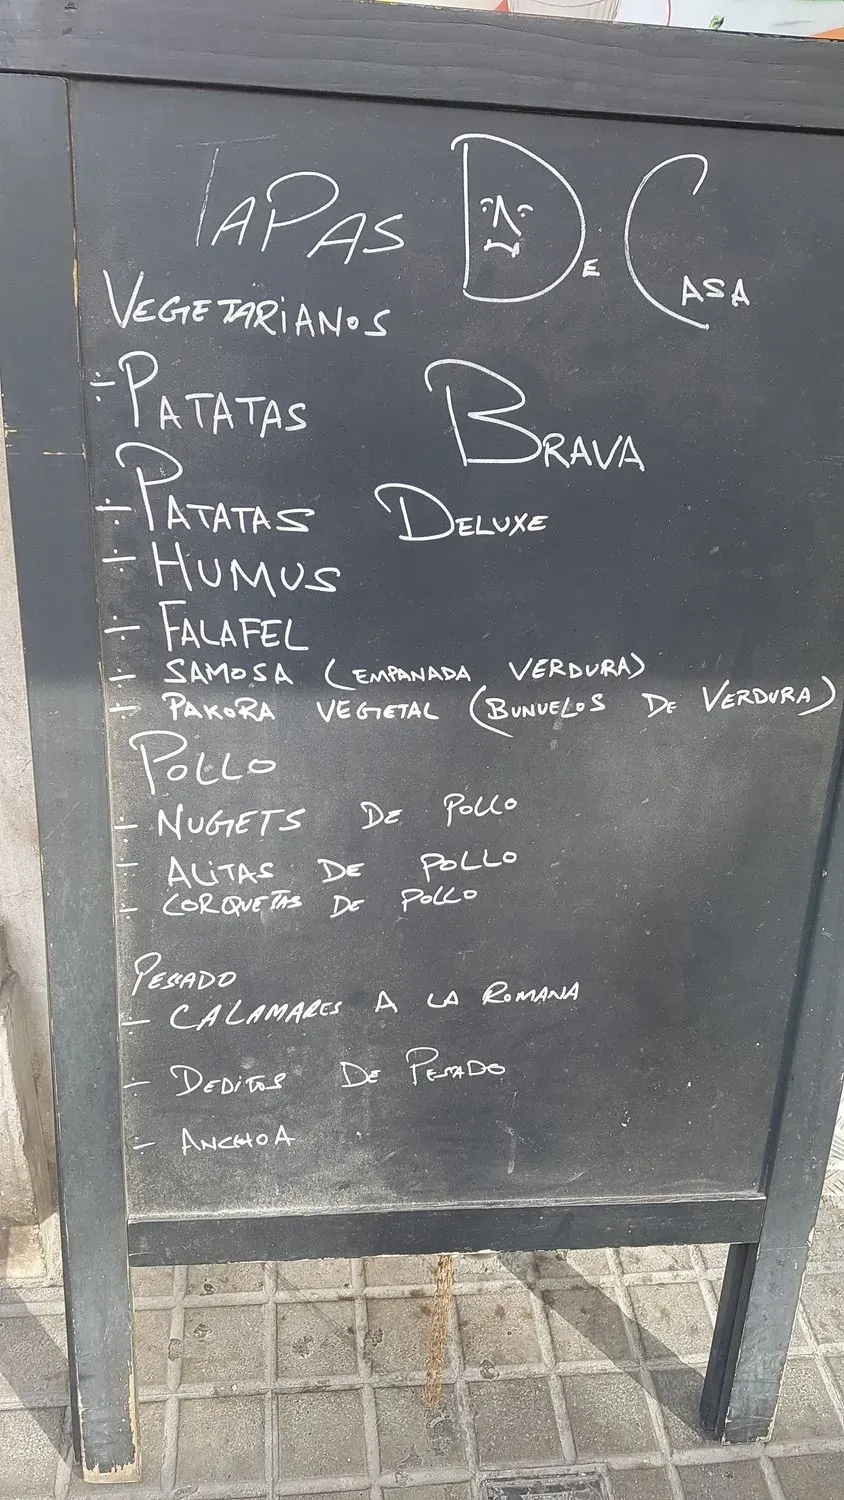 TAPAS DE CASA
VEGETARIANOS
÷ PATATAS BRAVA
÷ PATATAS DELUXE
÷ HUMUS
÷ FALAFEL
÷ SAMOSA (EMPANADA VERDURA)
÷ PAKORA VEGETAL (BUNUELOS DE VERDURA)
POLLO
÷ NUGETS DE POLLO
÷ ALITAS DE POLLO
÷ CORQUETAS DE POLLO
PESCADO
÷ CALAMARES A LA ROMANA
÷ DEDITOS DE PESCADO
÷ ANCHOA